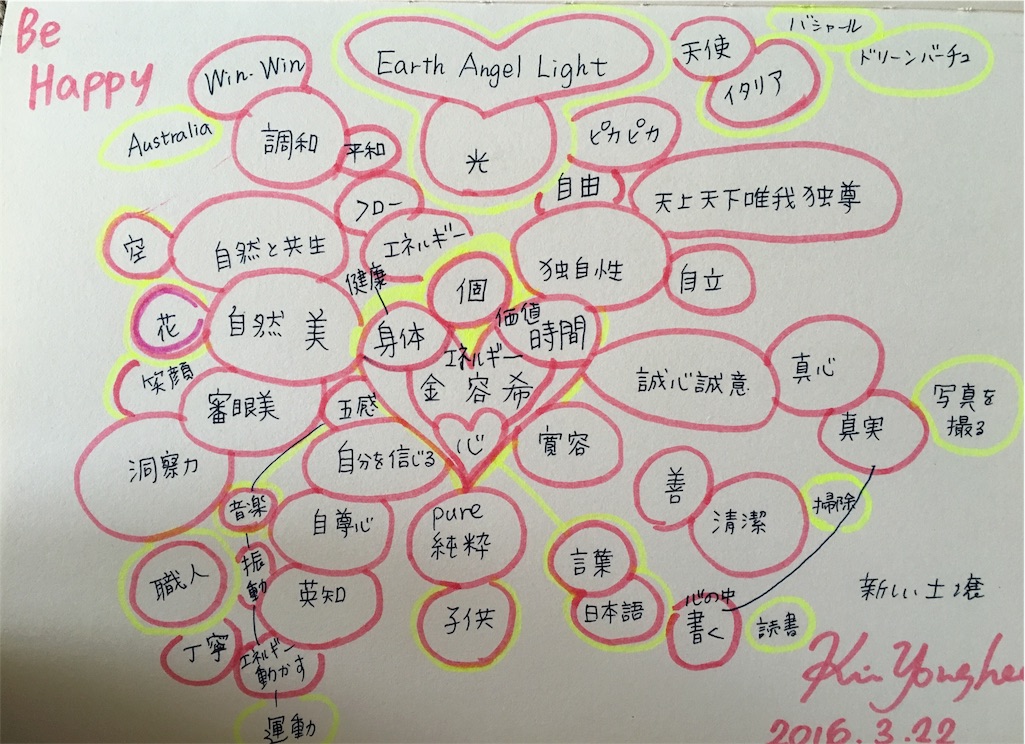 Be
Happy
Win-Win
Earth Angel Light
天使
バシャール
ドリーンバーチュ
イタリア
Australia
調和
平和
光
ピカピカ
フロー
自由
天上天下唯我独尊
空
自然と共生
エネルギー
健康
個
独自性
自立
花
自然 美
身体
価値
時間
エネルギー
笑顔
審眼美
五感
金 容希
誠心誠意
真心
写真を
撮る
洞察力
自分を信じる
心
寛容
真実
音楽
自尊心
pure
純粋
善
清潔
掃除
職人
振
動
英知
子供
言葉
日本語
心の中
書く
読書
新しい土壌
丁寧
エネルギー
動かす
運動
2016.3.22